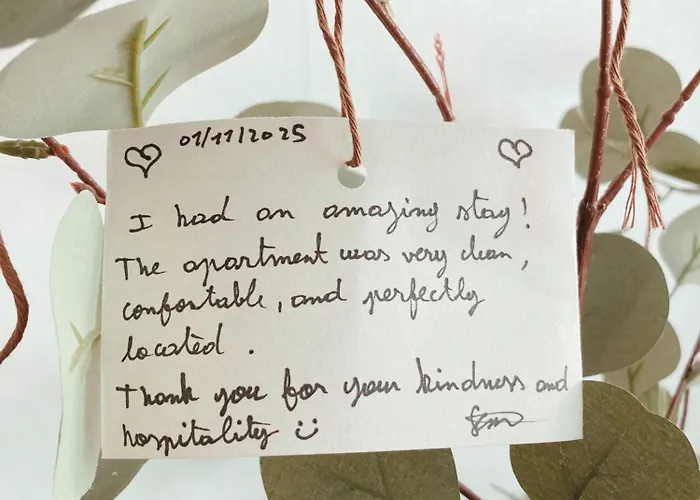 01/11/2025
I had an amazing stay!
The apartment was very clean,
confortable, and perfectly
located.
Thank you for your kindness and
hospitality